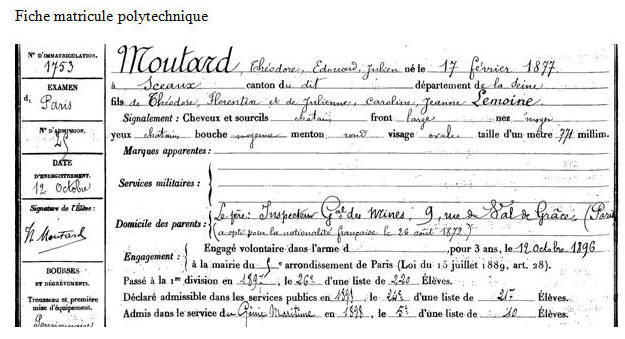 Fiche matricule polytechnique
N° D'IMMATRICULATION.
1753
EXAMEN
de Paris
N° D'ADMISSION.
25
DATE
D'ENREGISTREMENT.
12 Octobre
Signature de l'Élève:
Moutard
BOURSES
ET DÉGRÈVEMENTS.
Trousseau et première
mise d'équipement.
Moutard, Théodore, Edouard, Julien né le 17 février 1877
à Sceaux canton du dit département de la Seine
fils de Théodore, Florentin et de Julienne, Caroline, Jeanne Lemoine
Signalement : Cheveux et sourcils chatain front large nez moyen
yeux chatain bouche moyenne menton rond visage ovale taille d'un mètre 771 millim.
Marques apparentes :
Services militaires :
Domicile des parents : Le père: Inspecteur Gal des Mines; 9, rue du Val de Grâce, (Paris
(a opté pour la nationalité française le 26 août 1872)
Engagement : Engagé volontaire dans l'arme d pour 3 ans, le 12 Octobre 1896
à la mairie du 5e arrondissement de Paris (Loi du 15 juillet 1889, art. 28).
Passé à la 1re division en 1897, le 26e d'une liste de 220 Élèves.
Déclaré admissible dans les services publics en 1898, le 24e d'une liste de 217 Élèves.
Admis dans le service du Génie Maritime en 1898, le 5e d'une liste de 10 Élèves.